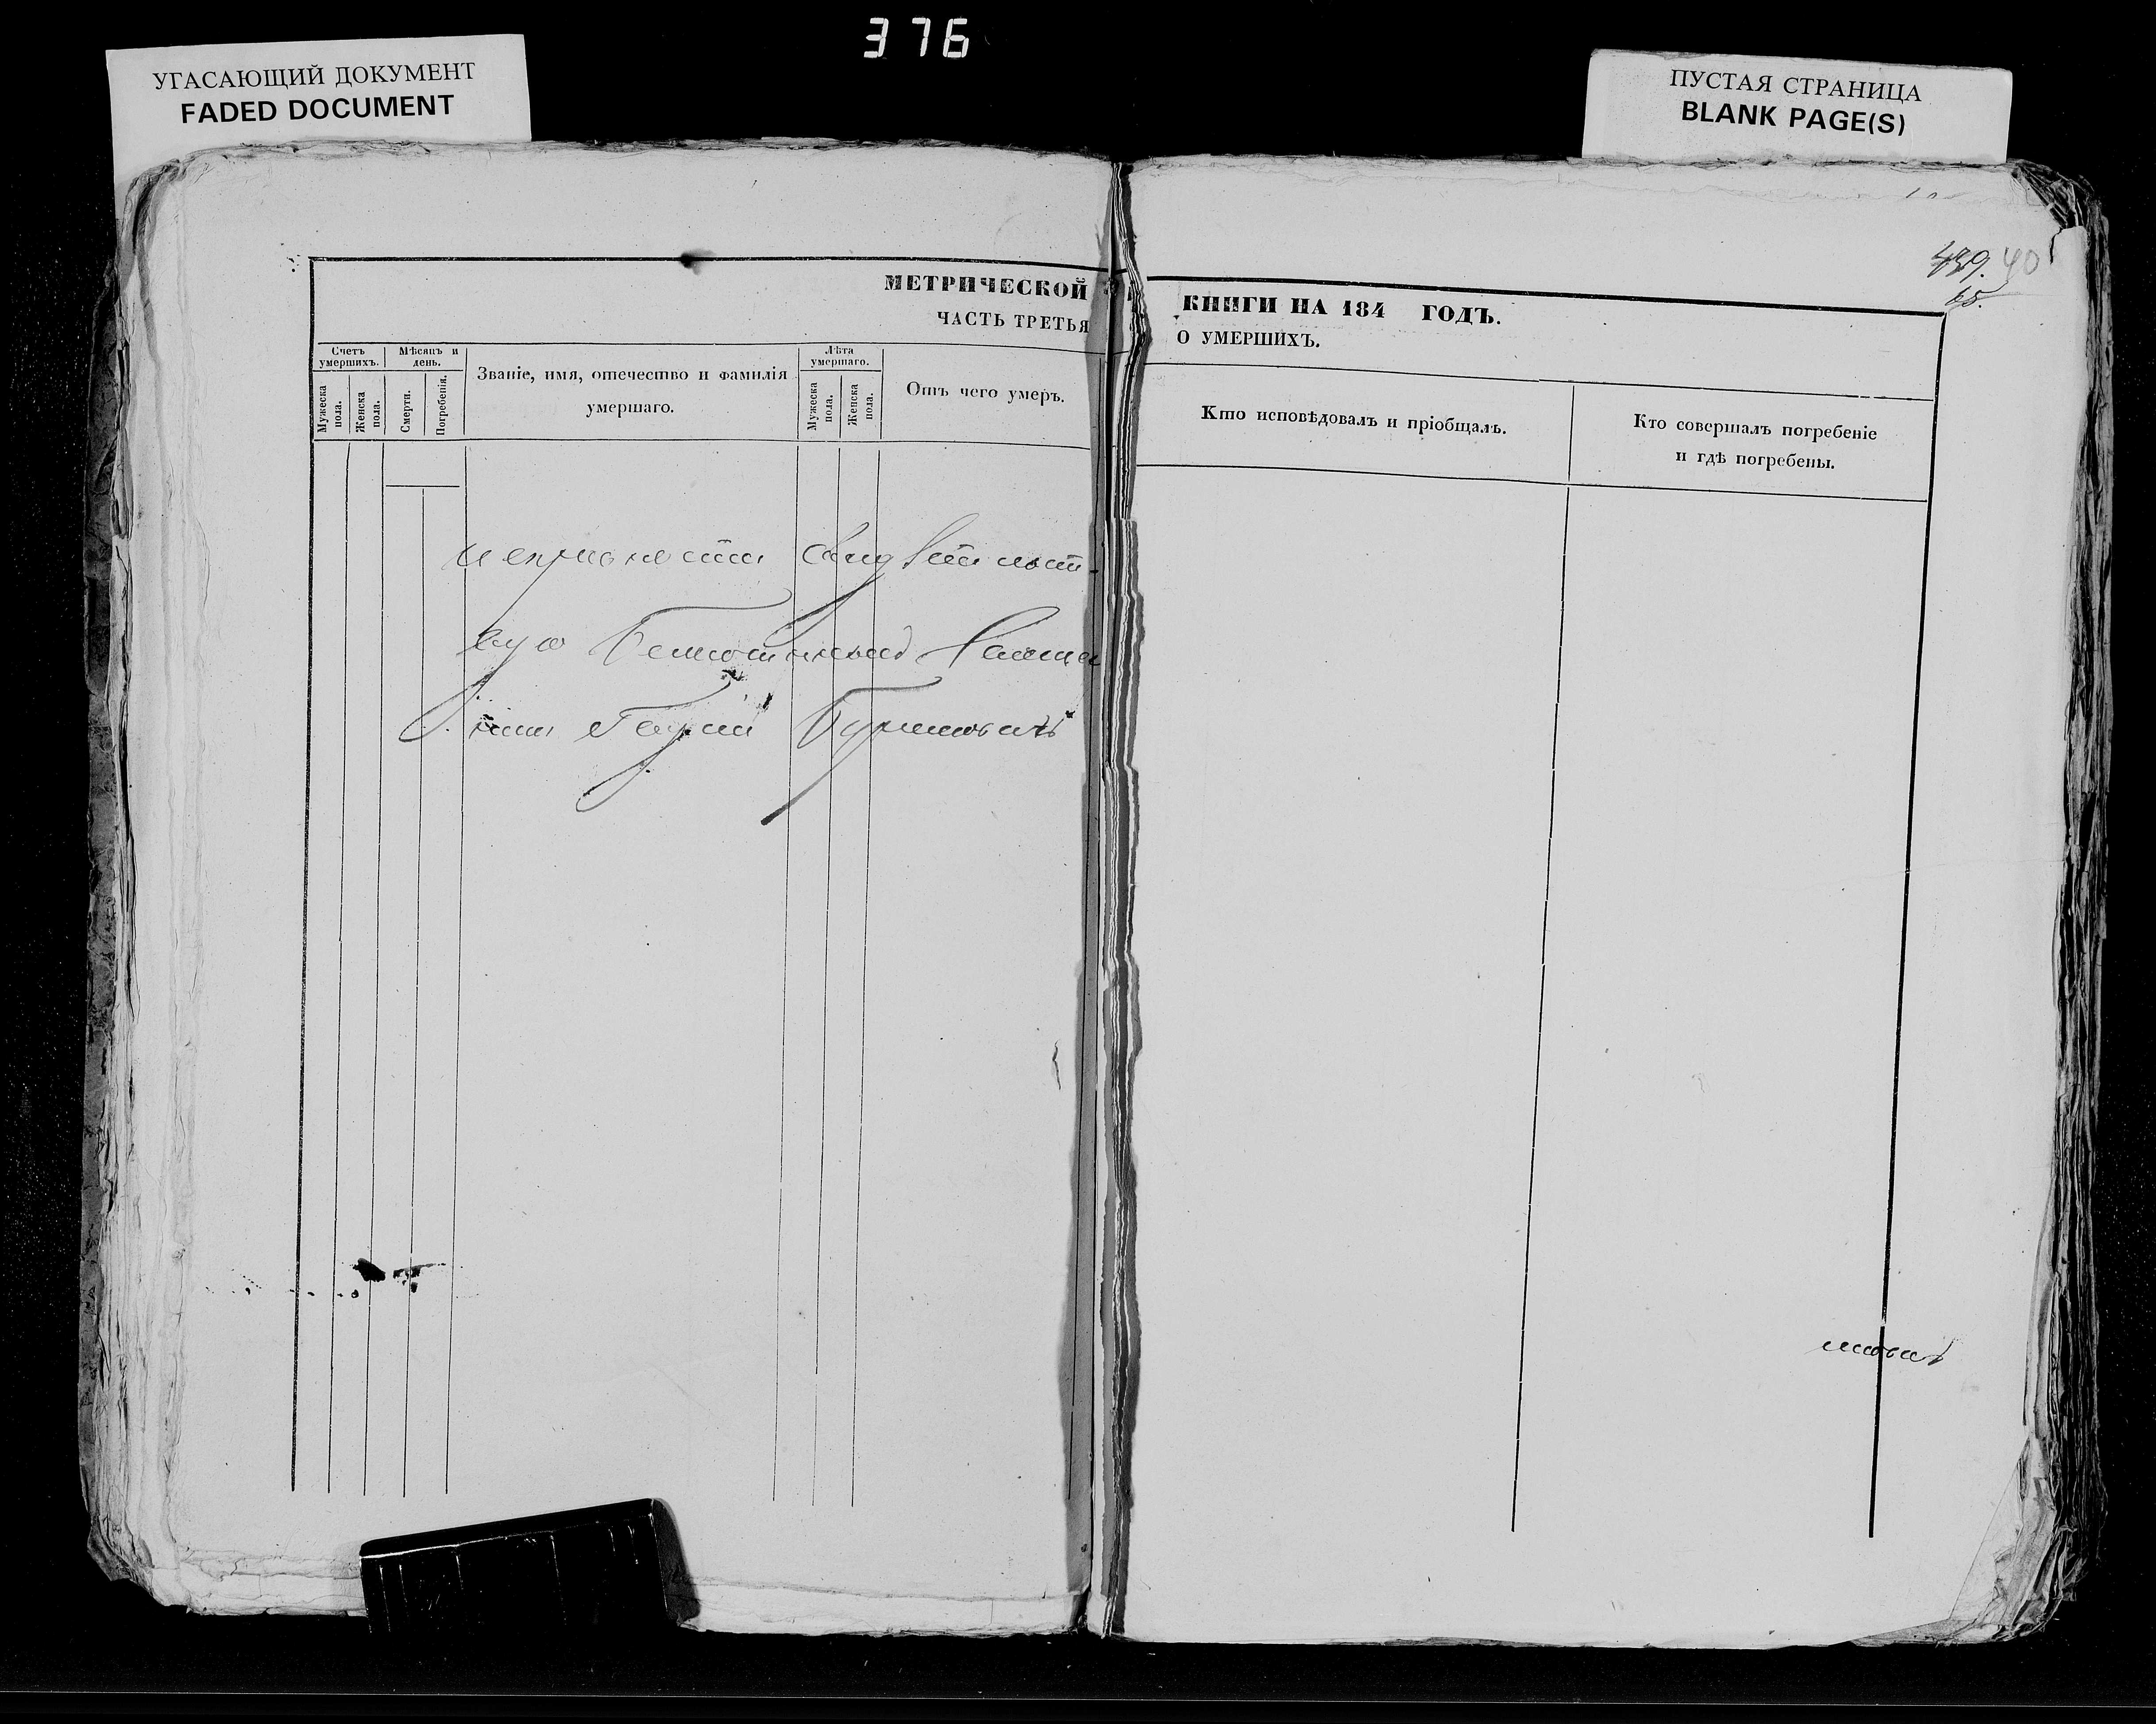 376
УГАСАЮЩИЙ ДОКУМЕНТ
FADED DOCUMENT
ПУСТАЯ СТРАНИЦА
BLANK PAGE(S)
439. 40
65.
МЕТРИЧЕСКОЙ КНИГИ НА 184 ГОДЪ.
ЧАСТЬ ТРЕТЬЯ О УМЕРШИХЪ.
Счетъ умершихъ.
Мужеска пола.
Женска пола.
Мѣсяцъ и день.
Смерти.
Погребенія.
Званіе, имя, отечество и фамилія умершаго.
Лѣта умершаго.
Мужеска пола.
Женска пола.
Отъ чего умеръ.
Кто исповѣдовалъ и пріобщалъ.
Кто совершалъ погребеніе и гдѣ погребены.
свидѣтельст-
вую